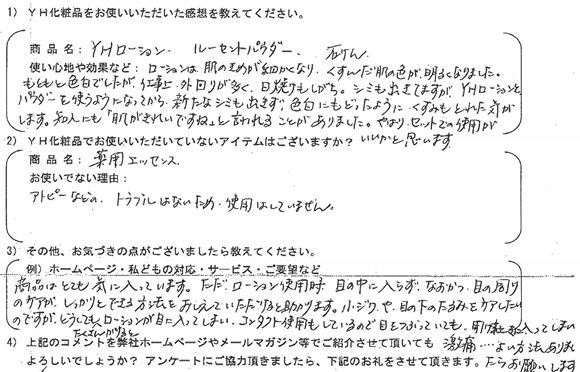 1) YH化粧品をお使いいただいた感想を教えてください。
商品名：YHローション、ルーセントパウダー、石けん
使い心地や効果など：ローションは肌のきめが細かくなり、くすんだ肌の色が明るくなりました。
もともと色白でしたが、仕事上外回りが多く、日焼けもしがち。シミも出きてますが、YHローションと
パウダーを使うようになってから、新たなシミも出きず、色白にもどったように、くすみもとれた気が
します。知人にも「肌がきれいですね」と言われることがありました。やはりセットでの使用が
いいかと思います
2) YH化粧品でお使いいただいていないアイテムはございますか？
商品名：薬用エッセンス
お使いでない理由：
アトピーなどの、トラブルはないため、使用はしていません。
3) その他、お気づきの点がございましたら教えてください。
例）ホームページ・私どもの対応・サービス・ご要望など
商品はとても気に入っています。ただ、ローション使用時、目の中に入らず、なおかつ、目の周り
のケアがしっかりとできる方法をおしえていただけると助かります。小ジワや、目の下のたるみをケアしたい
のですが、どうしてもローションが目に入ってしまい、コンタクト使用もしているので目をつぶっていても、開けた時に入ってしまい
たくさんつけると
激痛…よい方法ありまし
たらお願いします
4) 上記のコメントを弊社ホームページやメールマガジン等でご紹介させて頂いても
よろしいでしょうか？ アンケートにご協力頂きましたら、下記のお礼をさせて頂きます。